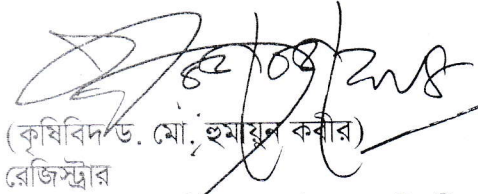 (কৃষিবিদ ড. মো. হুমায়ুন কবীর)
রেজিস্ট্রার